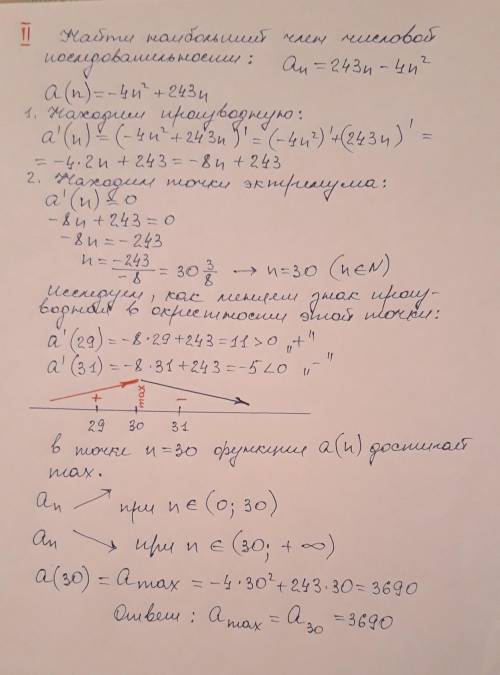 II Найти наибольший член числовой
последовательности: an = 243n - 4n²
a(n) = -4n² + 243n
1. Находим производную:
a'(n) = (-4n² + 243n)' = (-4n²)' + (243n)' =
= -4·2n + 243 = -8n + 243
2. Находим точки эктремума:
a'(n) = 0
-8n + 243 = 0
-8n = -243
n = -243/-8 = 30 3/8 → n = 30 (n∈N)
Исследуем, как меняет знак произ-
водная в окрестности этой точки:
a'(29) = -8·29 + 243 = 11 > 0 „+"
a'(31) = -8·31 + 243 = -5 < 0 „-"
+ max -
29 30 31
в точке n = 30 функция a(n) достигает
max.
an ↗ при n ∈ (0; 30)
an ↘ при n ∈ (30; +∞)
a(30) = amax = -4·30² + 243·30 = 3690
Ответ: amax = a30 = 3690